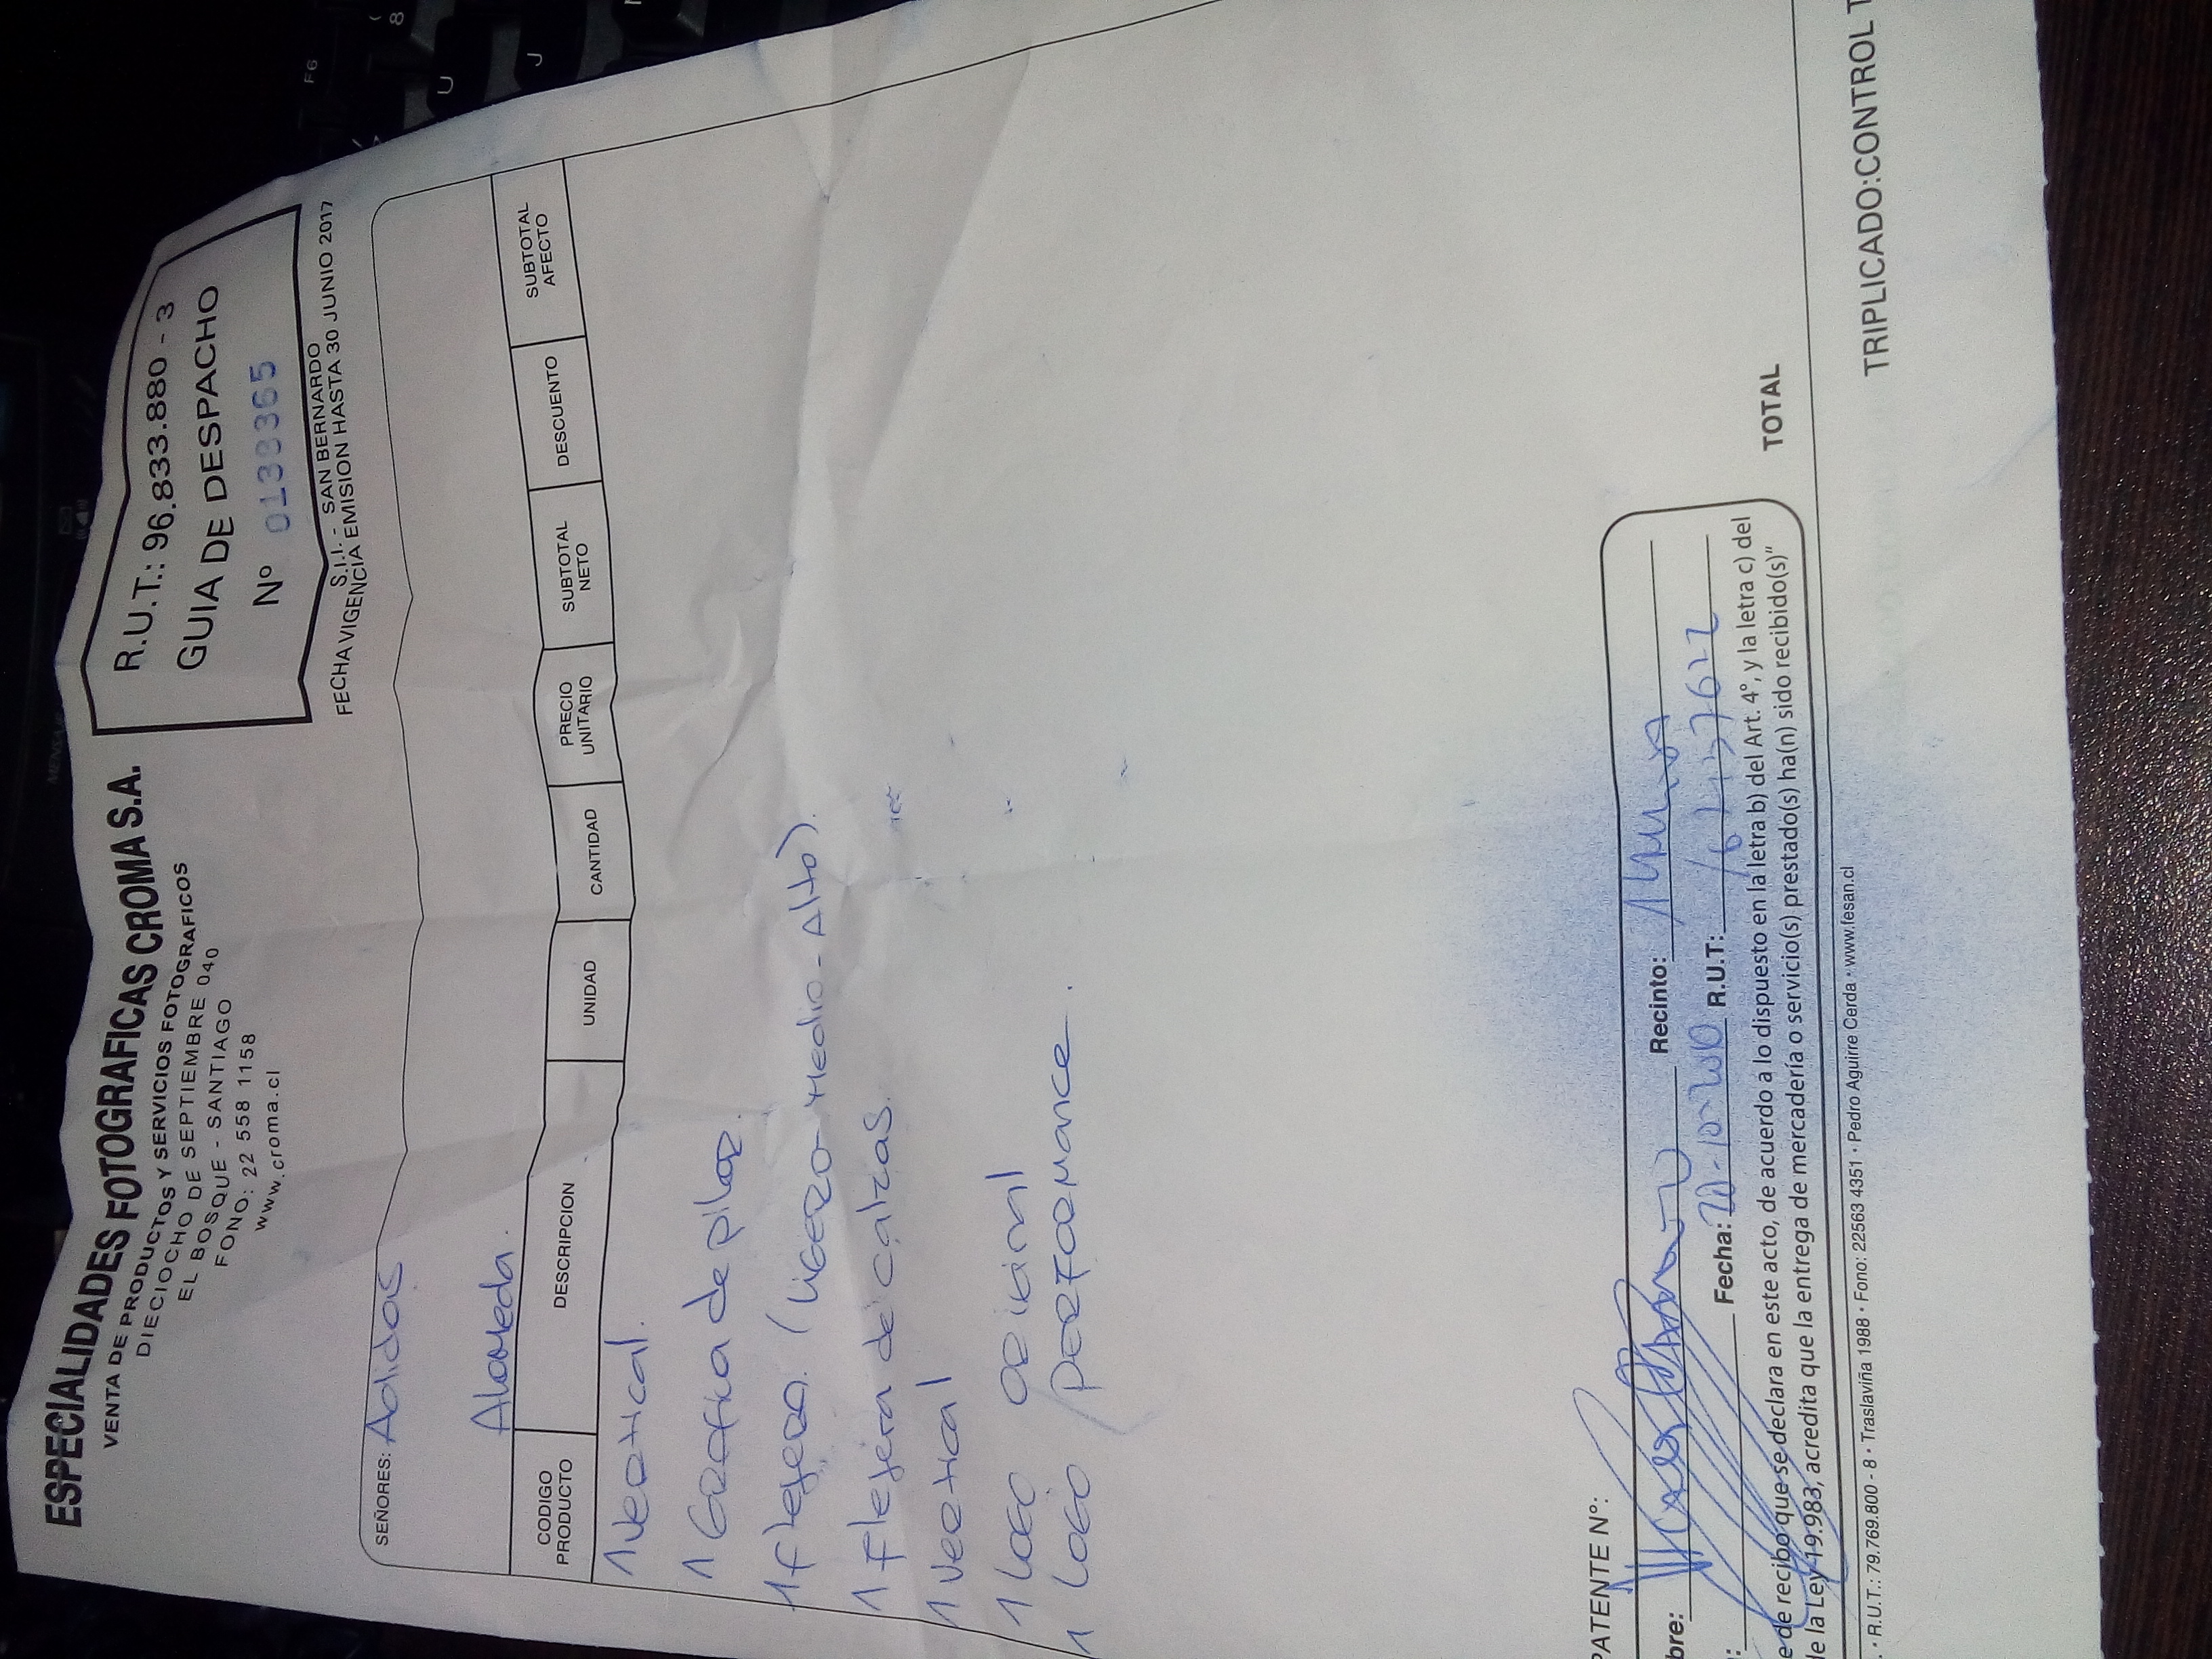 ESPECIALIDADES FOTOGRAFICAS CROMA S.A.
VENTA DE PRODUCTOS Y SERVICIOS FOTOGRAFICOS
DIECIOCHO DE SEPTIEMBRE 040
EL BOSQUE - SANTIAGO
FONO: 22 558 1158
www.croma.cl
R.U.T.: 96.833.880 - 3
GUIA DE DESPACHO
Nº 0138365
S.I.I. - SAN BERNARDO
FECHA VIGENCIA EMISION HASTA 30 JUNIO 2017
SEÑORES: Adidas
Alameda.
CODIGO PRODUCTO DESCRIPCION UNIDAD CANTIDAD PRECIO UNITARIO SUBTOTAL NETO DESCUENTO SUBTOTAL AFECTO
1 Vertical.
1 Grafica de pilar.
1 flejera. (Ligero - Medio - Alto).
1 flejera de calzas.
1 Vertical
1 Logo original
1 Logo PERFORMANCE.
PATENTE Nº:
bre: Recinto:
Fecha: R.U.T:
e de recibo que se declara en este acto, de acuerdo a lo dispuesto en la letra b) del Art. 4°, y la letra c) del
de la Ley 19.983, acredita que la entrega de mercadería o servicio(s) prestado(s) ha(n) sido recibido(s)"
TOTAL
. • R.U.T.: 79.769.800 - 8 • Traslaviña 1988 • Fono: 22563 4351 • Pedro Aguirre Cerda • www.fesan.cl
TRIPLICADO:CONTROL T
MENSAJE
F6
( 8
U
J